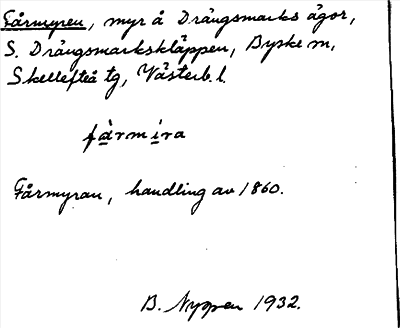 Fårmyren, myr å Drängsmarks ägor,
S. Drängsmarkskläppen, Byske m,
Skellefteå tg, Västerb. l.
fårmira
Fårmyran, handling av 1860.
B. Nyppen 1932.